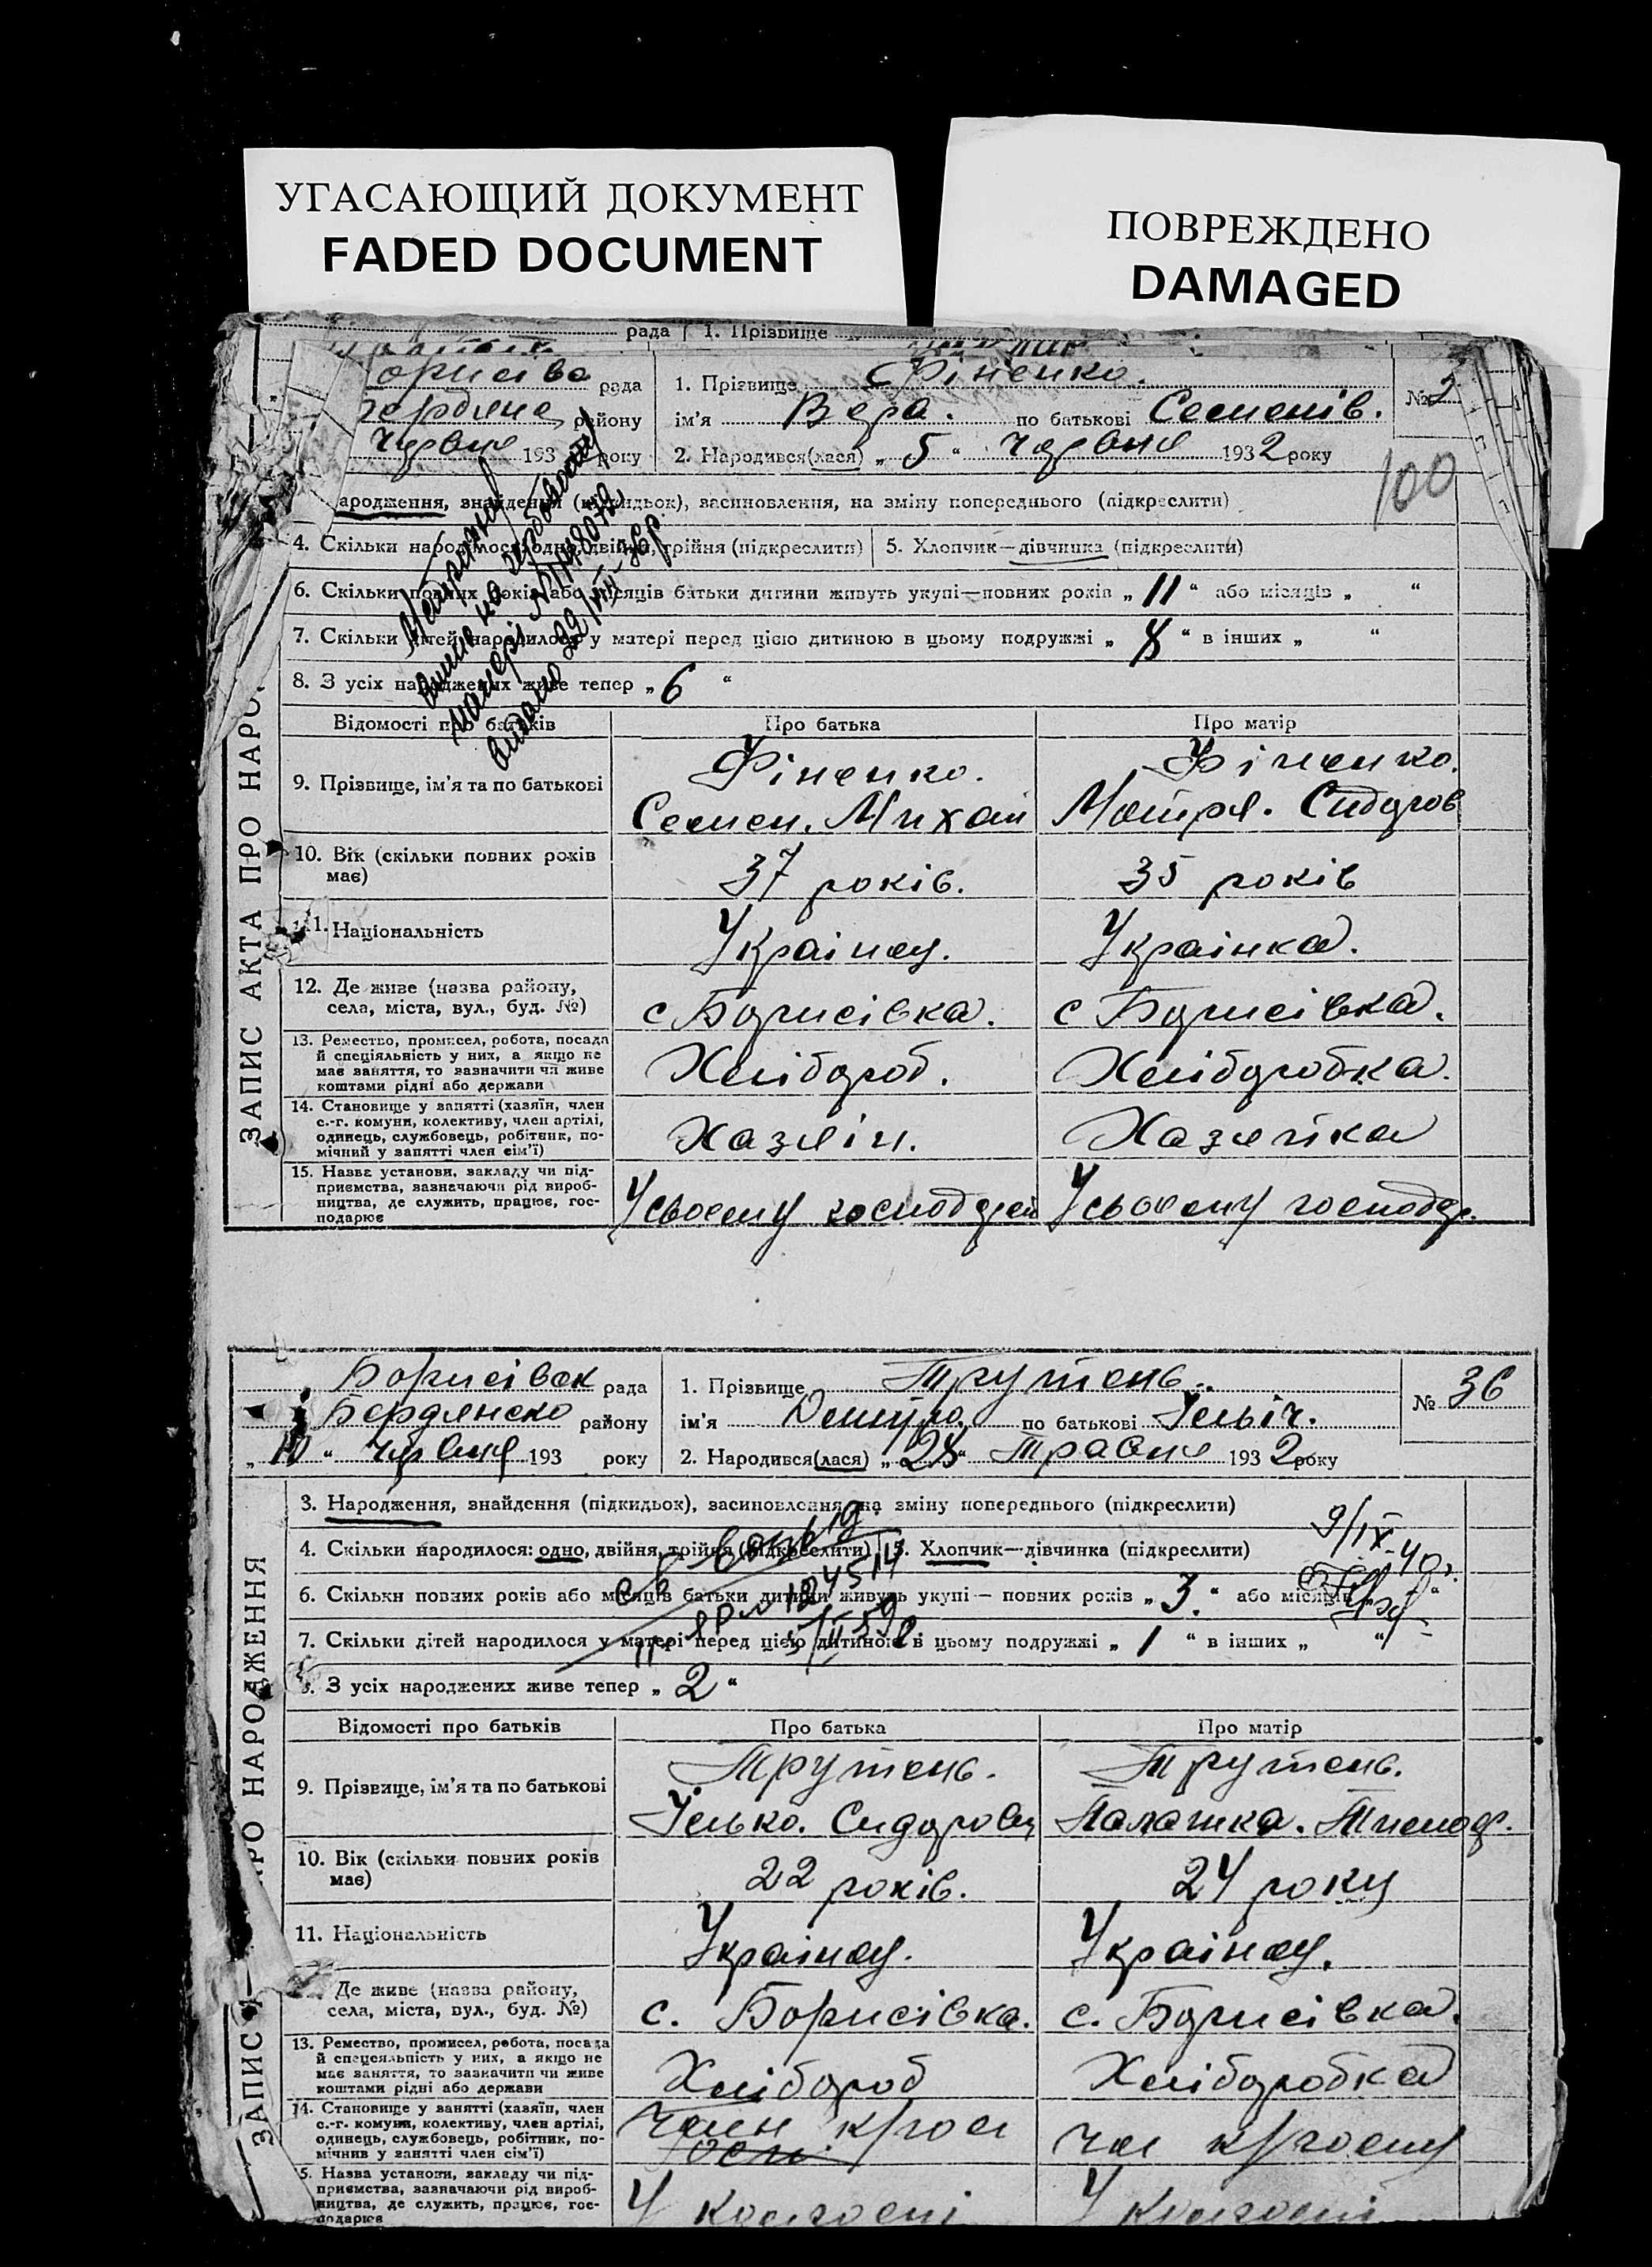 УГАСАЮЩИЙ ДОКУМЕНТ
FADED DOCUMENT
ПОВРЕЖДЕНО
DAMAGED
рада 1. Прізвище
рада 1. Прізвище Фіненко. №
району ім'я Вера. по батькові Семенів.
Червня 193 року 2. Народився(лася) „ 5 “ Червня 1932 року
100
ародження, знайдення (підкидьок), засиновлення, на зміну попереднього (підкреслити)
4. Скільки народилося: одно, двійня, трійня (підкреслити) 5. Хлопчик—дівчинка (підкреслити)
6. Скільки повних років або місяців батьки дитини живуть укупі—повних років „ 11 “ або місяців „ “
7. Скільки дітей народилося у матері перед цією дитиною в цьому подружжі „ 8 “ в інших „ “
8. З усіх народжених живе тепер „ 6 “
Відомості про батьків Про батька Про матір
9. Прізвище, ім'я та по батькові Фіненко. Фіненко.
Семен. Михай Мотря. Сидоров
10. Вік (скільки повних років має) 37 років. 35 років
11. Національність Українец. Українка.
12. Де живе (назва району, села, міста, вул., буд. №) с Борисівка. с Борисівка.
13. Ремество, промисел, робота, посада й спеціяльність у них, а якщо не має заняття, то зазначити чи живе коштами рідні або держави Хлібороб. Хліборобка.
14. Становище у занятті (хазяїн, член с.-г. комуни, колективу, член артілі, одинець, службовець, робітник, помічний у занятті член сім'ї) Хазяїн. Хазяйка
15. Назва установи, закладу чи підприємства, зазначаючи рід виробництва, де служить, працює, господарює У своему господар У своему господар.
ЗАПИС АКТА ПРО НАРО
Борисівск рада 1. Прізвище Трутень. № 36
Бердянско району ім'я Демид по батькові Ільіч.
„ 10 “ Червня 193 року 2. Народився(лася) „ 28 “ Травня 1932 року
3. Народження, знайдення (підкидьок), засиновлення, на зміну попереднього (підкреслити)
9/IX-40
4. Скільки народилося: одно, двійня, трійня (підкреслити) 5. Хлопчик—дівчинка (підкреслити)
6. Скільки повних років або місяців батьки дитини живуть укупі — повних років „ 3. “ або місяців „ “
7. Скільки дітей народилося у матері перед цією дитиною в цьому подружжі „ 1 “ в інших „ “
З усіх народжених живе тепер „ 2 “
Відомості про батьків Про батька Про матір
9. Прізвище, ім'я та по батькові Трутень. Трутень.
Ілько. Сидорович Палашка. Тимоф.
10. Вік (скільки повних років має) 22 років. 24 року
11. Національність Українец. Українец.
Де живе (назва району, села, міста, вул., буд. №) с. Борисівка. с. Борисівка.
13. Ремество, промисел, робота, посада й спецсяльність у них, а якщо не має заняття, то зазначити чи живе коштами рідні або держави Хлібороб Хліборобка
14. Становище у занятті (хазяїн, член с.-г. комуни, колективу, член артілі, одинець, службовець, робітник, помічник у занятті член сім'ї) Член к/гос чл к/госпу
5. Назва установи, закладу чи підприємства, зазначаючи рід виробництва, де служить, працює, господарює У колгоспі У колгоспі
ЗАПИС ПРО НАРОДЖЕННЯ